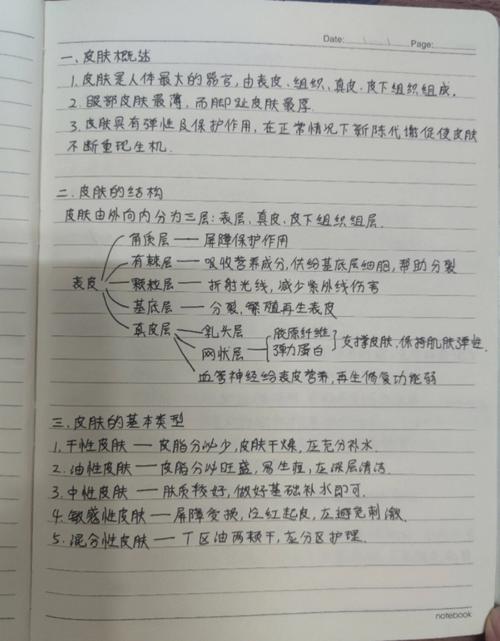 Date: Page:
一、皮肤概述
1. 皮肤是人体最大的器官,由表皮、组织、真皮、皮下组织组成.
2. 眼部皮肤最薄,而脚趾皮肤最厚
3. 皮肤具有弹性及保护作用,在正常情况下新陈代谢促使皮肤
不断重现生机.
二、皮肤的结构
皮肤由外向内分为三层:表层、真皮、皮下组织组层.
角质层——屏障保护作用
有棘层——吸收营养成分,供给基底层细胞,帮助分裂
表皮 颗粒层——折射光线,减少紫外线伤害
基底层——分裂,繁殖再生表皮
真皮层——乳头层 胶原纤维
网状层 弹力蛋白 支撑皮肤,保持肌肤弹性.
血管神经给表皮营养,再生修复功能弱
三、皮肤的基本类型
1. 干性皮肤——皮脂分泌少,皮肤干燥,应充分补水.
2. 油性皮肤——皮脂分泌旺盛,易生痘,应深层清洁.
3. 中性皮肤——肤质较好,做好基础补水即可.
4. 敏感性皮肤——屏障受损,泛红起皮,应避免刺激.
5. 混合性皮肤——T区油两颊干,应分区护理.
notebook